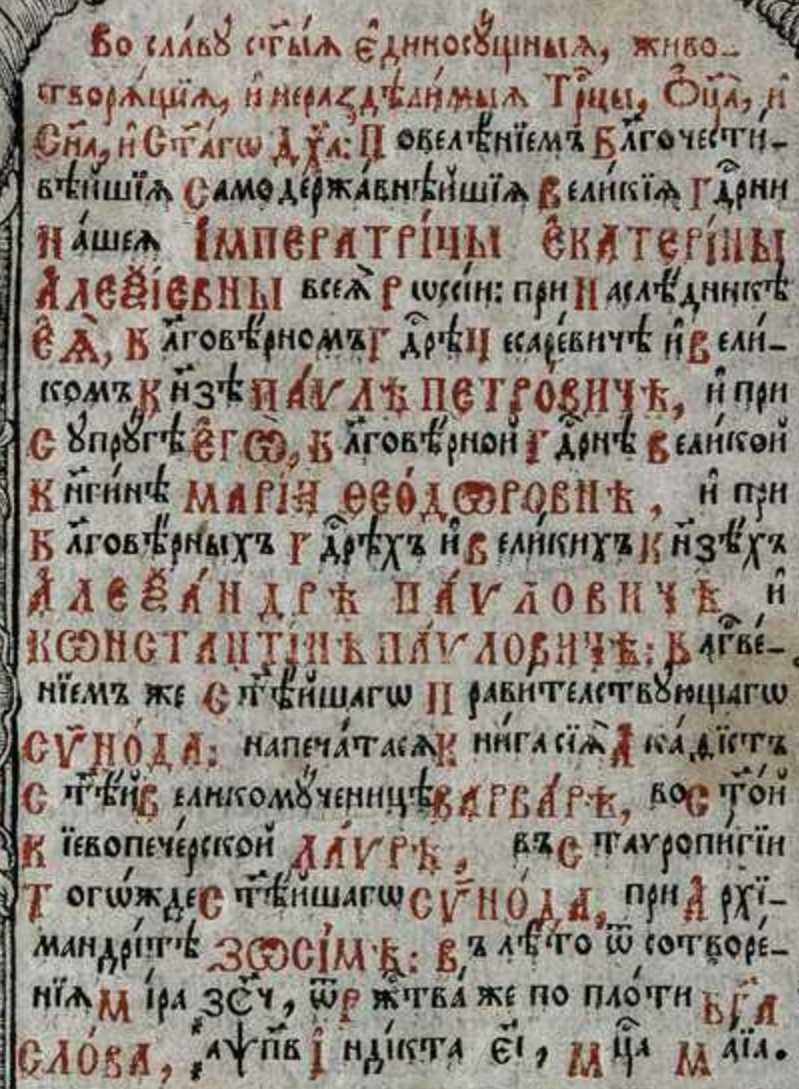 Во сла́вꙋ ст҃ы́ѧ є҆диносꙋ́щныѧ, живо-
творѧ́щїѧ, и҆ нераздѣли́мыѧ Трⷪ҇цы, Ѻ҆ц҃а̀, и҆
Сн҃а, и҆ Ст҃а́гѡ Дх҃а: Повелѣ́нїемъ Бл҃гочести́-
вѣйшїѧ Самодержа́внѣйшїѧ Вели́кїѧ Гдⷭ҇рни
На́шеѧ І҆МПЕРАТРІ́ЦЫ Є҆КАТЕРІ́НЫ
А҆ЛЕѮІ́ЕВНЫ всеѧ̀ Рѡссі́и: при Наслѣ́дникѣ
Є҆Ѧ̀, Бл҃говѣ́рномъ Гдⷭ҇рѣ Цесаре́вичѣ и҆ Вели́-
комъ Кн҃зѣ ПА́ѴЛѢ ПЕТРО́ВИЧѢ, и҆ при
Сꙋпрꙋ́гѣ Є҆ГѠ̀, Бл҃говѣ́рной Гдⷭ҇рнѣ Вели́кой
Кн҃ги́нѣ МАРІ́И ѲЕО́ДѠРОВНѢ, и҆ при
Бл҃говѣ́рныхъ Гдⷭ҇рѣхъ и҆ Вели́кихъ Кн҃зѣ́хъ
А҆ЛЕѮА́НДРѢ ПА́ѴЛОВИЧѢ и҆
КѠНСТАНТІ́НѢ ПА́ѴЛОВИЧѢ: Блгⷭ҇ве́-
нїемъ же Ст҃ѣ́йшагѡ Прави́телствꙋющагѡ
СѴНО́ДА: напеча́тасѧ Кни́га сїѧ̀ А҆ка́ѳїстъ
Ст҃ѣ́й Великомꙋ́ченицѣ ВАРВА́РѢ, во Ст҃о́й
Кїевопече́рской ЛА́ѴРѢ, въ Стаѵропи́гїи
Тогѡ́жде Ст҃ѣ́йшагѡ СѴНО́ДА, при А҆рхї-
мандрі́тѣ ЗѠСІ́МѢ: Въ лѣ́то ѿ сотворе́-
нїѧ Мі́ра ҂зс҃ч, ѿ Ржⷭ҇тва́ же по пло́ти БГ҃А
СЛО́ВА, ҂аѱп҃в І҆ндї́кта є҃і, Мцⷭ҇а Ма́їа.